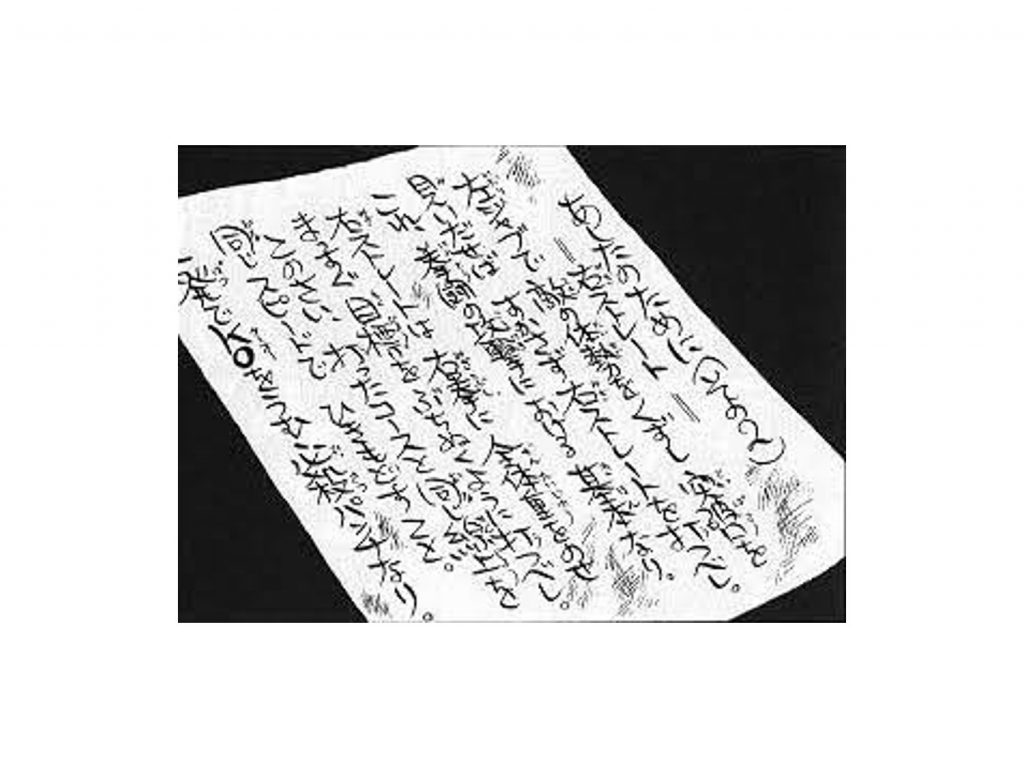 あしたのために(その2)
＝右ストレート＝
左ジャブで 敵の体勢をくずし 突破口を
見いだせば すかさず右ストレートをすべし。
これ 拳闘の攻撃における 基本なり。
右ストレートは 右拳に 全体重をのせ
まっすぐ 目標をぶちぬくように すべし。
このさい 打ったコースと同じ線上を
同じスピードで ひきもどすこと。
一発で KOをうむ 必殺パンチなり。